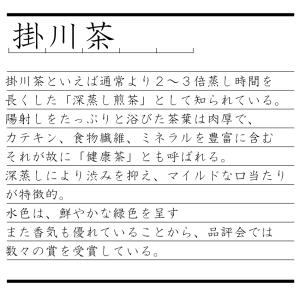 掛川茶
掛川茶といえば通常より２～３倍蒸し時間を
長くした「深蒸し煎茶」として知られている。
陽射しをたっぷりと浴びた茶葉は肉厚で、
カテキン、食物繊維、ミネラルを豊富に含む
それが故に「健康茶」とも呼ばれる。
深蒸しにより渋みを抑え、マイルドな口当たり
が特徴的。
水色は、鮮やかな緑色を呈す
また香気も優れていることから、品評会では
数々の賞を受賞している。